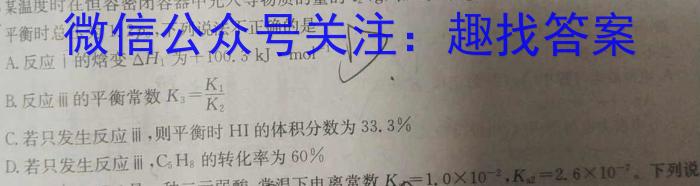 某温度时在恒容密闭容器中充入等物质的量的
平衡时总 下列说法不正确的是
微信公众号关注：趣找答案
A.反应ⅰ的焓变 ΔH₁ 为+100.3 kJ· mol⁻¹
B.反应ⅲ的平衡常数 K₃=K₁/K₂
C.若只发生反应ⅲ,则平衡时 HI 的体积分数为 33.3%
D.若只发生反应ⅲ,C₅H₈ 的转化率为 60%
二元弱酸,常温下电离常数 Kₐ₁=1.0×10⁻²,Kₐ₂=2.6×10⁻⁷。下列说